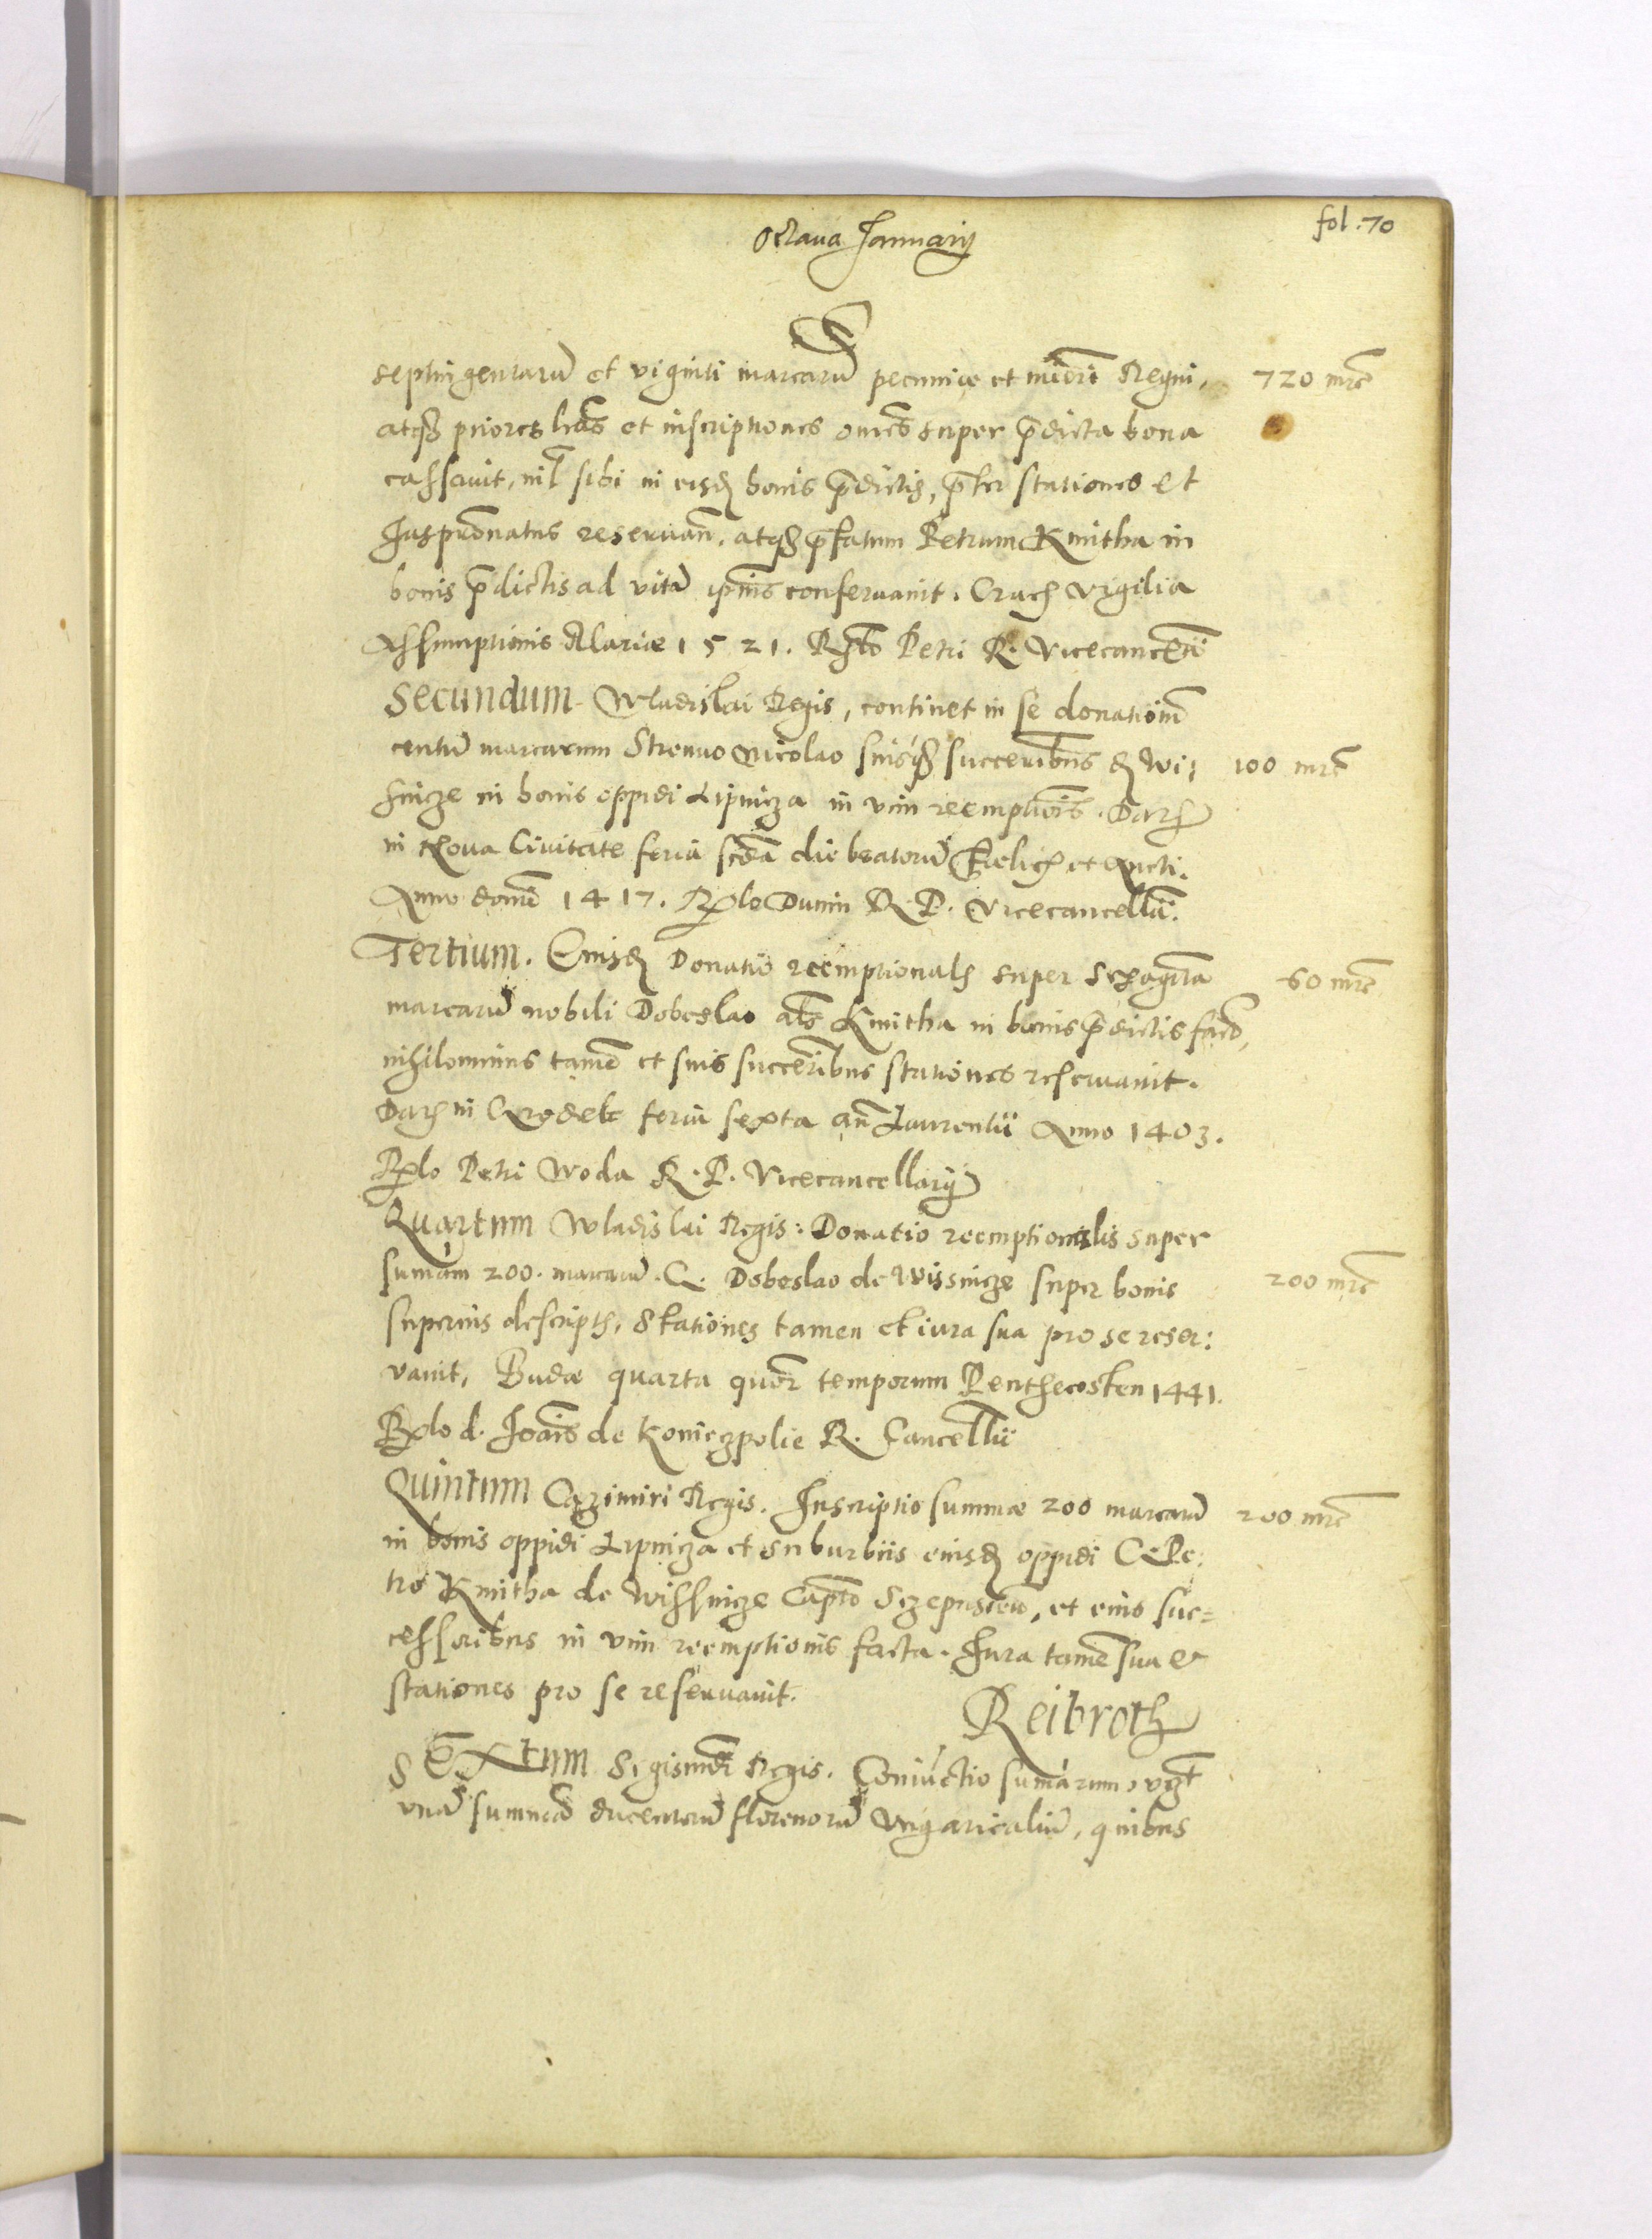 fol. 70
Octaua Januarij
septingentarũ et viginti marcarũ pecuniæ et nũeri Regni, 720 mrc̃
atqȝ priores lr̃as et inscriptiones om̃es super p̃dicta bona
cassauit, nil̃ sibi in eisd bonis p̃dictis, p̃ter stationes et
Juspr̃onatus reseruan̄. atqȝ p̃fatum Petrum Kmitha in
bonis p̃dictis ad vitã ip̃ius conseruauit. Crac Vigilia
Assumptionis Mariæ 1521. Petri R. Vicecancellĩi
Secundum Wladislai Regis, continet in se donationẽ
centũ marcarum Strenuo Nicolao suisqȝ successoribus d Wi: 100 mrc̃
snicze in bonis oppidi Lipnicza in vim reemptionis. Dat
in Noua Ciuitate feria scda die beatorũ Fælic et Aucti.
Anno domĩ 1417. Rlo Dunin R. P. Vicecancellãi.
Tertium. Eiusd Donatio reemptional super Sexagĩta 60 mrc̃
marcarũ nobili Dobeslao al̃s Kmitha in bonis p̃dictis fac̃,
nihilominus tamẽ et suis succeribus stationes reseruauit.
Dat in Grodek feria sexta an̄ Laurentii Anno 1403.
Rlo Petri Woda R. P. Vicecancellarij
Quartum Wladislai Regis: Donatio reemptionalis super
sumam 200. marcarũ. G. Dobeslao de Wissnicze super bonis 200 mrc̃
superius descript, Stationes tamen et iura sua pro se reser:
vauit, Budæ quarta quor̃ temporum Penthecosten 1441.
Rlo d. Joãis de Koniczpolie R. Cancellĩi
Quintum Cazimiri Regis. Inscriptio summæ 200 marcarũ 200 mrc̃
in bonis oppidi Lipnicza et suburbiis eiusd oppidi G. Pe:
tro Kmitha de Wissnicze Cap̃to Sczepusieñ, et eius suc=
cessoribus in vim reemptionis facta. Jura tamẽ sua et
stationes pro se reseruauit.
Reibroth
SExtum Sigismũdi Regis. Coniũctio sumarum, vzt
vnã summã ducentorũ florenorũ Vngaricaliũ, quibus